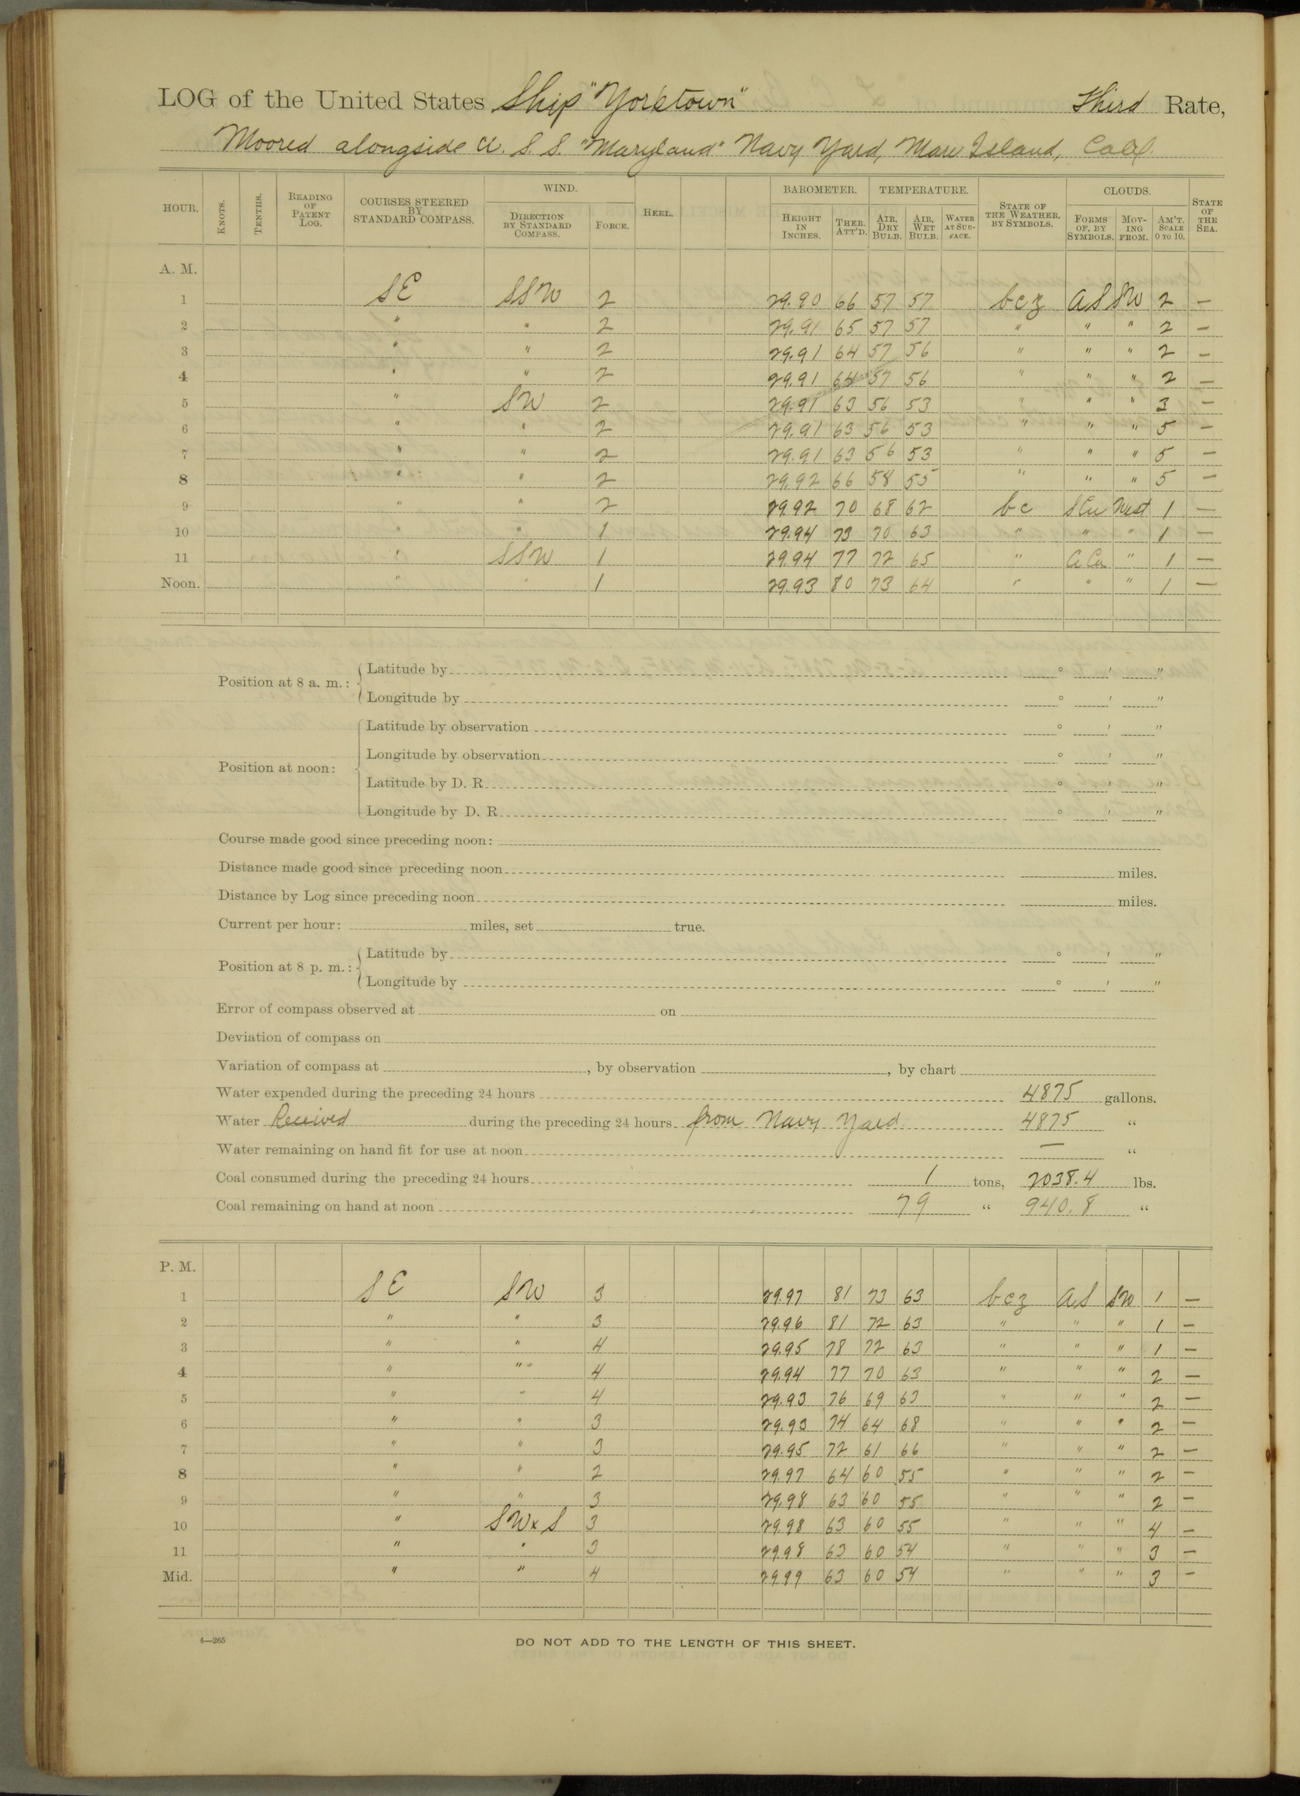 LOG of the United States Ship "Yorktown" Third Rate,
Moored alongside U. S. S. "Maryland" Navy Yard, Mare Island, Calif.
HOUR. KNOTS. TENTHS. READING OF PATENT LOG. COURSES STEERED BY STANDARD COMPASS. WIND. DIRECTION BY STANDARD COMPASS. FORCE. HEEL. BAROMETER. HEIGHT IN INCHES. THER. ATT'D. TEMPERATURE. AIR, DRY BULB. AIR, WET BULB. WATER AT SURFACE. STATE OF THE WEATHER, BY SYMBOLS. CLOUDS. FORMS OF, BY SYMBOLS. MOVING FROM. AM'T. SCALE 0 TO 10. STATE OF THE SEA.
A. M.
1 SE SSW 2 29.90 66 57 57 bcz AS SW 2 —
2 " " 2 29.91 65 57 57 " " " 2 —
3 " " 2 29.91 64 57 56 " " " 2 —
4 " " 2 29.91 64 57 56 " " " 2 —
5 " SW 2 29.91 63 56 53 " " " 3 —
6 " " 2 29.91 63 56 53 " " " 5 —
7 " " 2 29.91 63 56 53 " " " 5 —
8 " " 2 29.92 66 58 55 " " " 5 —
9 " " 2 29.92 70 68 62 bc SCu West 1 —
10 " " 1 29.94 73 70 63 " " " 1 —
11 " SSW 1 29.94 77 72 65 " ACu " 1 —
Noon. " " 1 29.93 80 73 64 " " " 1 —
Position at 8 a. m.: Latitude by ° ' "
Longitude by ° ' "
Position at noon: Latitude by observation ° ' "
Longitude by observation ° ' "
Latitude by D. R. ° ' "
Longitude by D. R. ° ' "
Course made good since preceding noon:
Distance made good since preceding noon miles.
Distance by Log since preceding noon miles.
Current per hour: miles, set true.
Position at 8 p. m.: Latitude by ° ' "
Longitude by ° ' "
Error of compass observed at on
Deviation of compass on
Variation of compass at , by observation , by chart
Water expended during the preceding 24 hours 4875 gallons.
Water Received during the preceding 24 hours from Navy Yard 4875 "
Water remaining on hand fit for use at noon — "
Coal consumed during the preceding 24 hours 1 tons, 2038.4 lbs.
Coal remaining on hand at noon 79 " 940.8 "
P. M.
1 SE SW 3 29.97 81 73 63 bcz AS SW 1 —
2 " " 3 29.96 81 72 63 " " " 1 —
3 " " 4 29.95 78 72 63 " " " 1 —
4 " " 4 29.94 77 70 63 " " " 2 —
5 " " 4 29.93 76 69 63 " " " 2 —
6 " " 3 29.93 74 64 68 " " " 2 —
7 " " 3 29.95 72 61 66 " " " 2 —
8 " " 2 29.97 64 60 55 " " " 2 —
9 " " 3 29.98 63 60 55 " " " 2 —
10 " SWxS 3 29.98 63 60 55 " " " 4 —
11 " " 3 29.98 63 60 54 " " " 3 —
Mid. " " 4 29.99 63 60 54 " " " 3 —
4—265
DO NOT ADD TO THE LENGTH OF THIS SHEET.